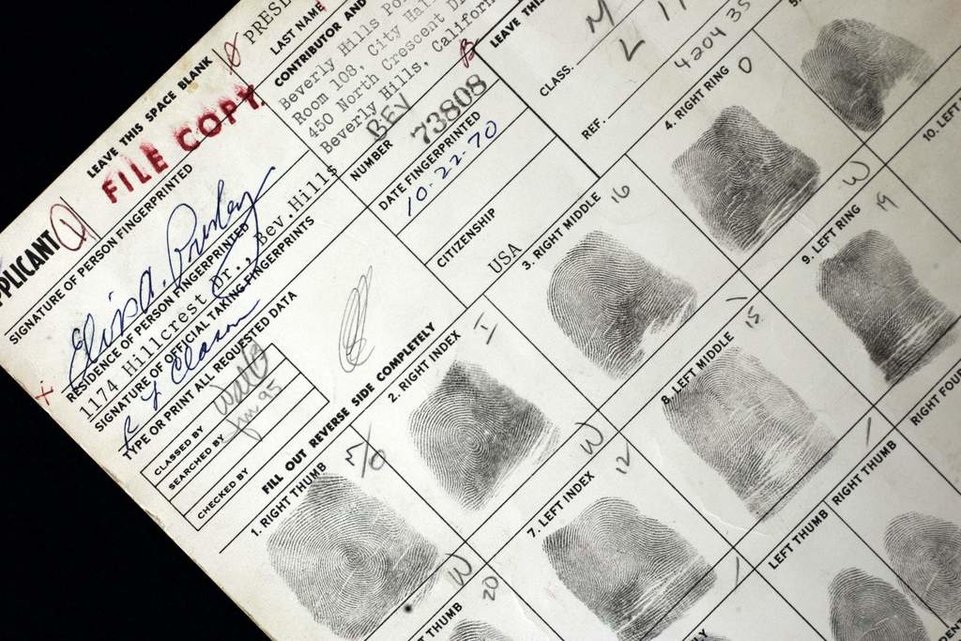 LEAVE THIS SPACE BLANK
FILE COPY
APPLICANT
SIGNATURE OF PERSON FINGERPRINTED
Elvis A. Presley
RESIDENCE OF PERSON FINGERPRINTED
1174 Hillcrest Dr., Bev.Hills
SIGNATURE OF OFFICIAL TAKING FINGERPRINTS
TYPE OR PRINT ALL REQUESTED DATA
CLASSED BY
SEARCHED BY
CHECKED BY
FILL OUT REVERSE SIDE COMPLETELY
PRESL
LAST NAME
CONTRIBUTOR AND
Beverly Hills Pol
Room 108, City Hal
450 North Crescent Dr
Beverly Hills, Californ
BEV
NUMBER 73808
DATE FINGERPRINTED
10-22-70
CITIZENSHIP
USA
LEAVE THIS
CLASS.
M
L
REF.
4204 35
1. RIGHT THUMB
2. RIGHT INDEX
3. RIGHT MIDDLE
16
4. RIGHT RING
0
5.
W
20
7. LEFT INDEX
W
12
8. LEFT MIDDLE
15
9. LEFT RING
W
19
10. LEFT
THUMB
LEFT THUMB
RIGHT THUMB
RIGHT FOUR